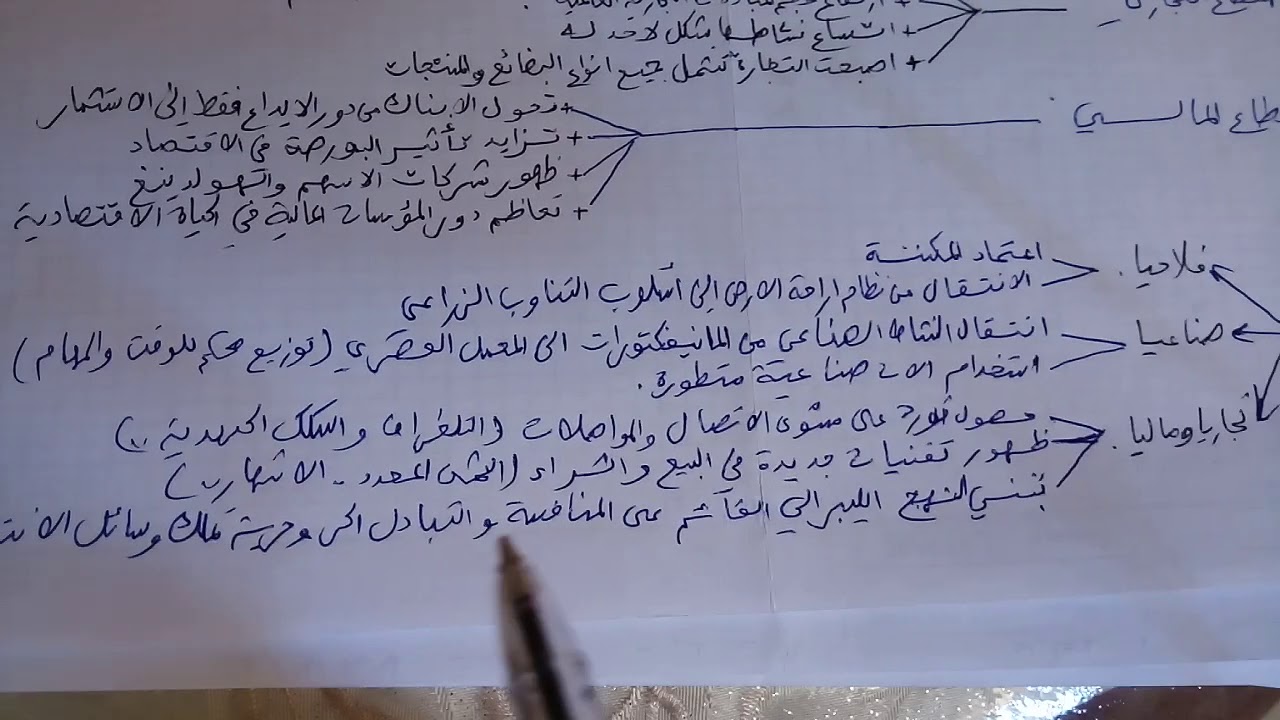 + اتساع نشاطها بشكل لا حد له
+ اصبحت التجارة تشمل جميع انواع البضائع والمنتجات
القطاع المالي
+ تحول الابناك من دور الايداع فقط إلى الاستثمار
+ تزايد تأثير البورصة في الاقتصاد
+ ظهور شركات الاسهم والهولدينغ
+ تعاظم دور المؤسسات المالية في الحياة الاقتصادية
فلاحيا .
اعتماد المكننة
الانتقال من نظام اراحة الارض إلى أسلوب التناوب الزراعي
صناعيا
انتقال النشاط الصناعي من المانيفكتورات الى المعمل العصري (توزيع محكم للوقت والمهام)
استخدام الات صناعية متطورة .
تجاريا وماليا .
حصول ثورة على مستوى الاتصال والمواصلات (التلغراف والسكك الحديدية ..)
ظهور تقنيات جديدة في البيع والشراء (الثمن المحدد .. الاشهار ..)
تبني النهج الليبرالي القائم على المنافسة والتبادل الحر وحرية تملك وسائل